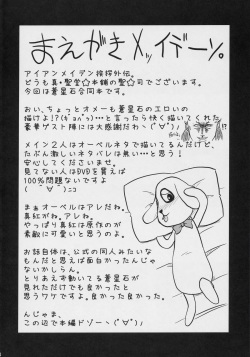 まえがきメッイデーン。
アイアンメイデン挨拶外伝。
どうも真・聖堂☆本舗の聖☆司でございます。
今回は蒼星石合同本です。
おい、ちょっとオメーも蒼星石のエロいの
描けよ!?(ギョパっ)…と言ったら快く描いてくれた
豪華ゲスト陣には大感謝だわ〜(ﾟ∀ﾟ)
メイン2人はオーベルネタで描いてるんだけど、
たぶん激しいネタバレは無い…と思う!
安心してくださいませ。
見てない人はDVDを買えば
100%問題ないですよ
(ﾟ∀ﾟ)
まぁオーベルはアレだね。
真紅がね。アレね。
やっぱり真紅は原作のが
素敵に可愛いと思うのよ。
お話自体は、公式の同人みたいな
もんだと思えば面白かったんじゃ
ないかしらん。
とりあえず動いてる蒼星石が
見れただけでも良かったと
思うワケですよ。良かった良かった。
んじゃま、
この辺で本編ドゾ〜ヽ(ﾟ∀ﾟ)ノ